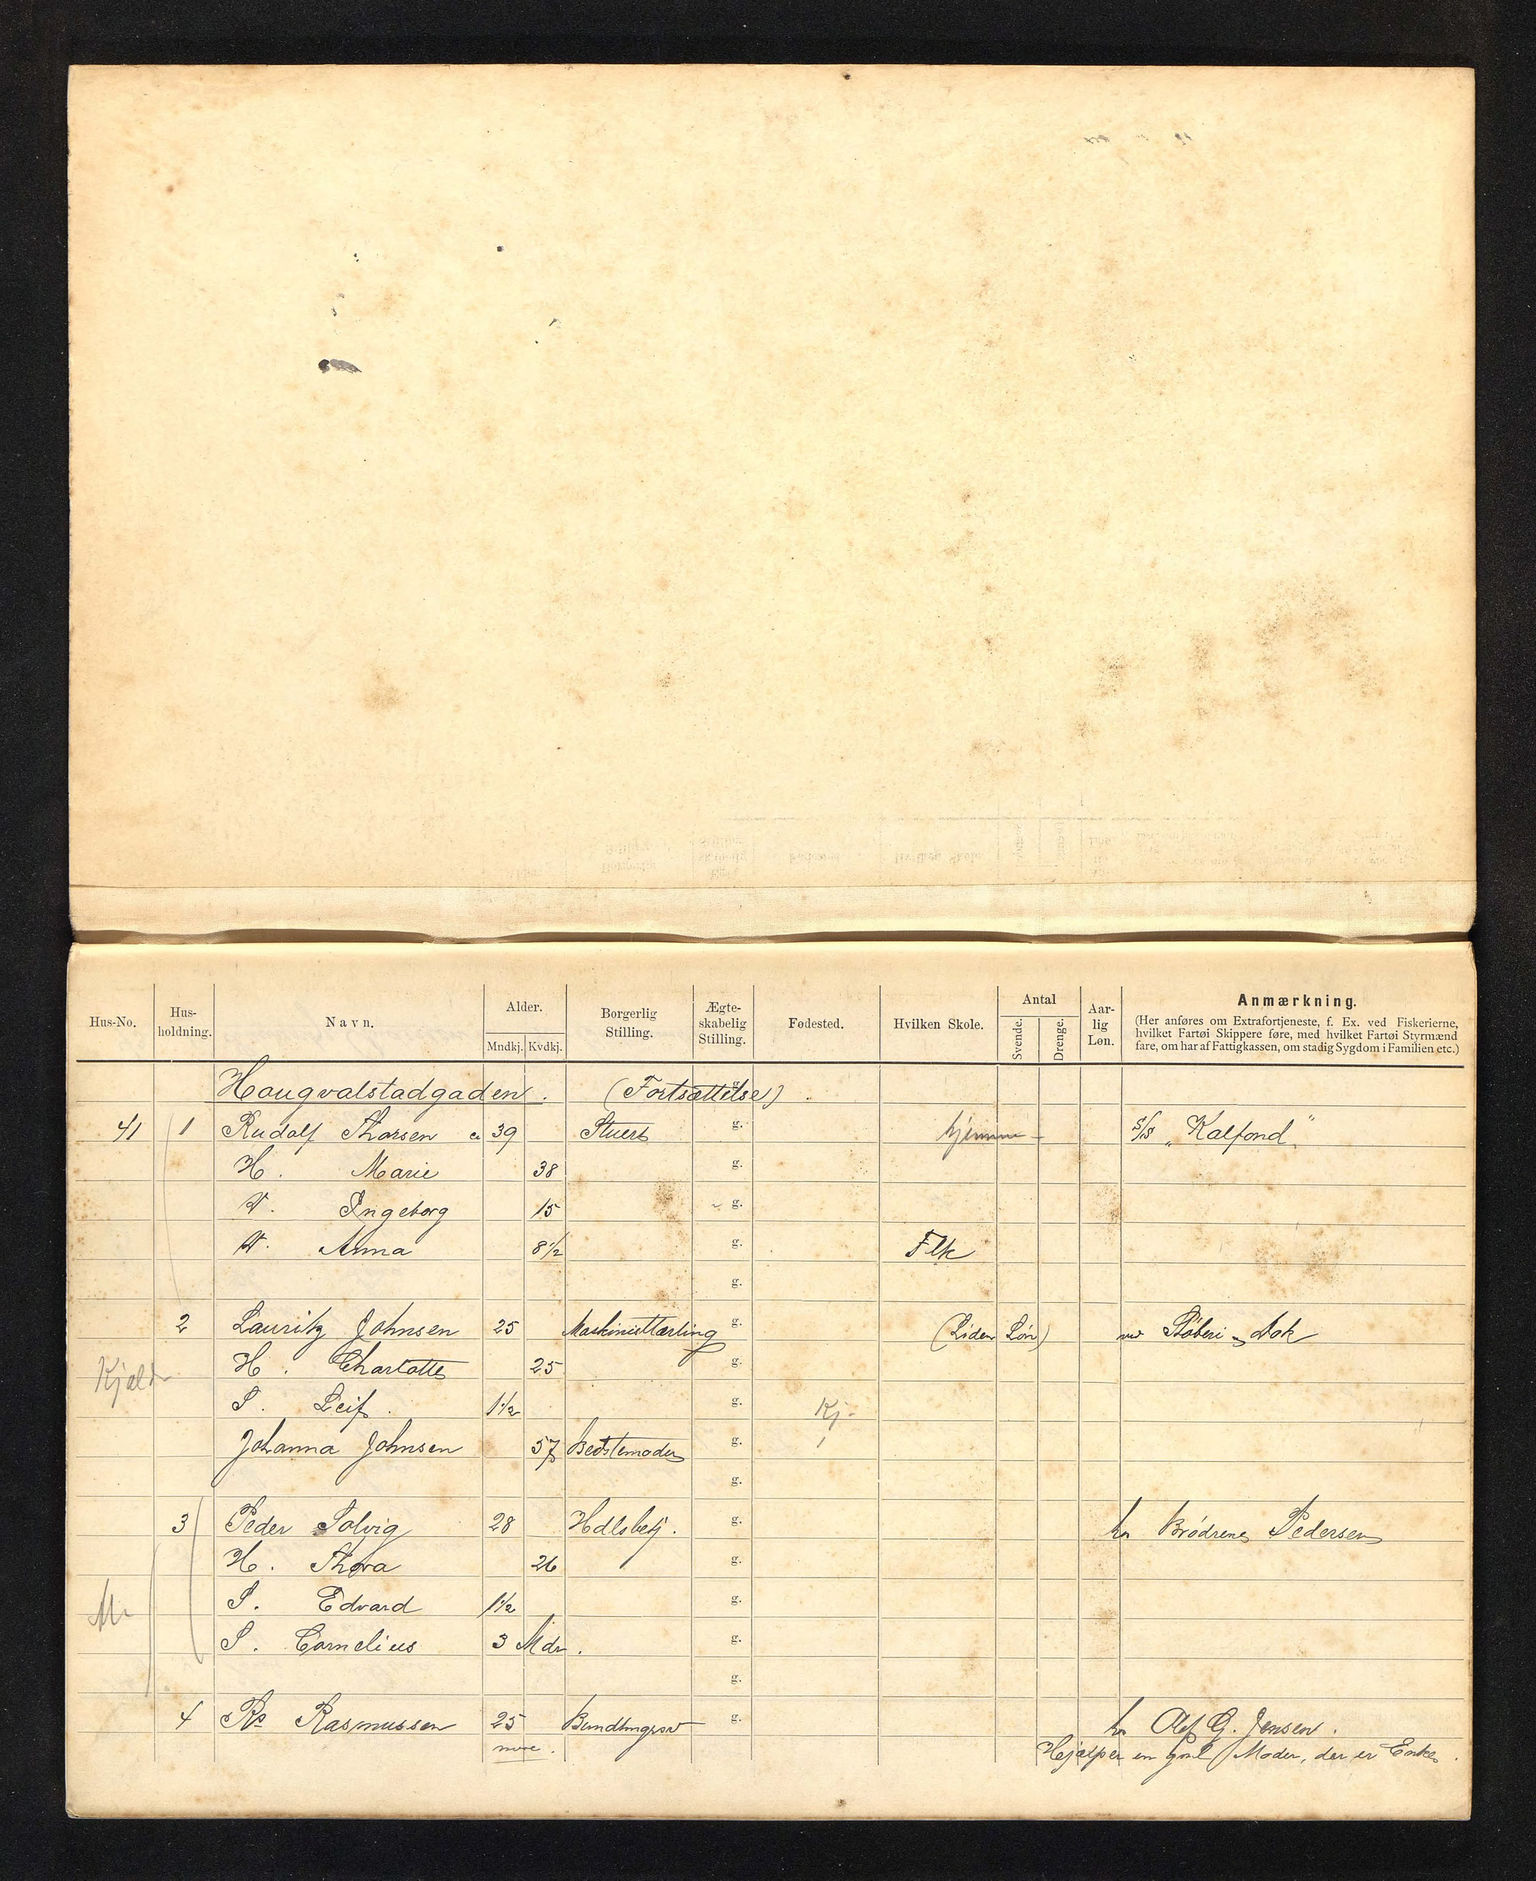 Hus-No. Hus-holdning. Navn. Alder. Mndkj. Kvdkj. Borgerlig Stilling. Ægte-skabelig Stilling. Fødested. Hvilken Skole. Antal Svende. Drenge. Aar-lig Løn. Anmærkning.
(Her anføres om Extrafortjeneste, f. Ex. ved Fiskerierne,
hvilket Fartøi Skippere føre, med hvilket Fartøi Styrmænd
fare, om har af Fattigkassen, om stadig Sygdom i Familien etc.)
Hougvalstadgaden. (Fortsættelse) g.
41 1 Rudolf Thorsen 39 Stuert g. hjemme S/S "Kalfond"
H. Marie 38 g.
D. Ingeborg 15 g.
D. Anna 8½ g. Flk
g.
2 Lauritz Johnsen 25 Maskinistlærling g. (Liden Løn) ved Støberi & Dok
Kjeld H. Charlotte 25 g.
S. Leif. 1½ g. Kj.
Johanna Johnsen 57 Bedstemoder g.
g.
3 Peder Solvig 28 Hdlsbetj. g. hos Brødrene Pedersen
H. Thora 26 g.
M. S. Edvard 1½ g.
S. Cornelius 3 Mdr. g.
g.
4 Rs Rasmussen 25 g. hos G. Jensen.
Hjælper en gml Moder, der er Enke.